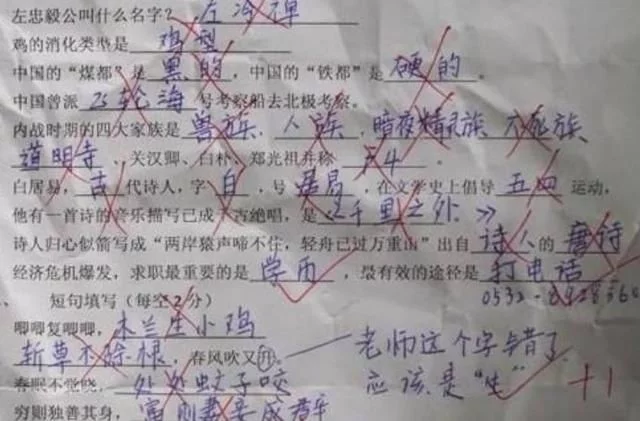 左忠毅公叫什么名字？左冷禅
鸡的消化类型是鸡型
中国的“煤都”是黑的，中国的“铁都”是硬的。
中国普派飞轮海号考察船去北极考察。
内战时期的四大家族是兽族、人族、暗夜精灵族、不死族、
道明寺、关汉卿、白朴、郑光祖并称F4。
白居易，古代诗人，字白，号居易，在文学史上倡导五四运动，
他有一首诗的音乐描写已成千古绝唱，是《千里之外》
诗人归心似箭写成“两岸猿声啼不住，轻舟已过万重山”出自诗人的唐诗
经济危机爆发，求职最重要的是学历，最有效的途径是打电话
0532-
短句填写（每空2分）
唧唧复唧唧，木兰是小鸡
斩草不除根，春风吹又升。
老师这个字错了
应该是“生” +1
春眠不觉晓，处处蚊子咬
穷则独善其身，富则妻妾成群